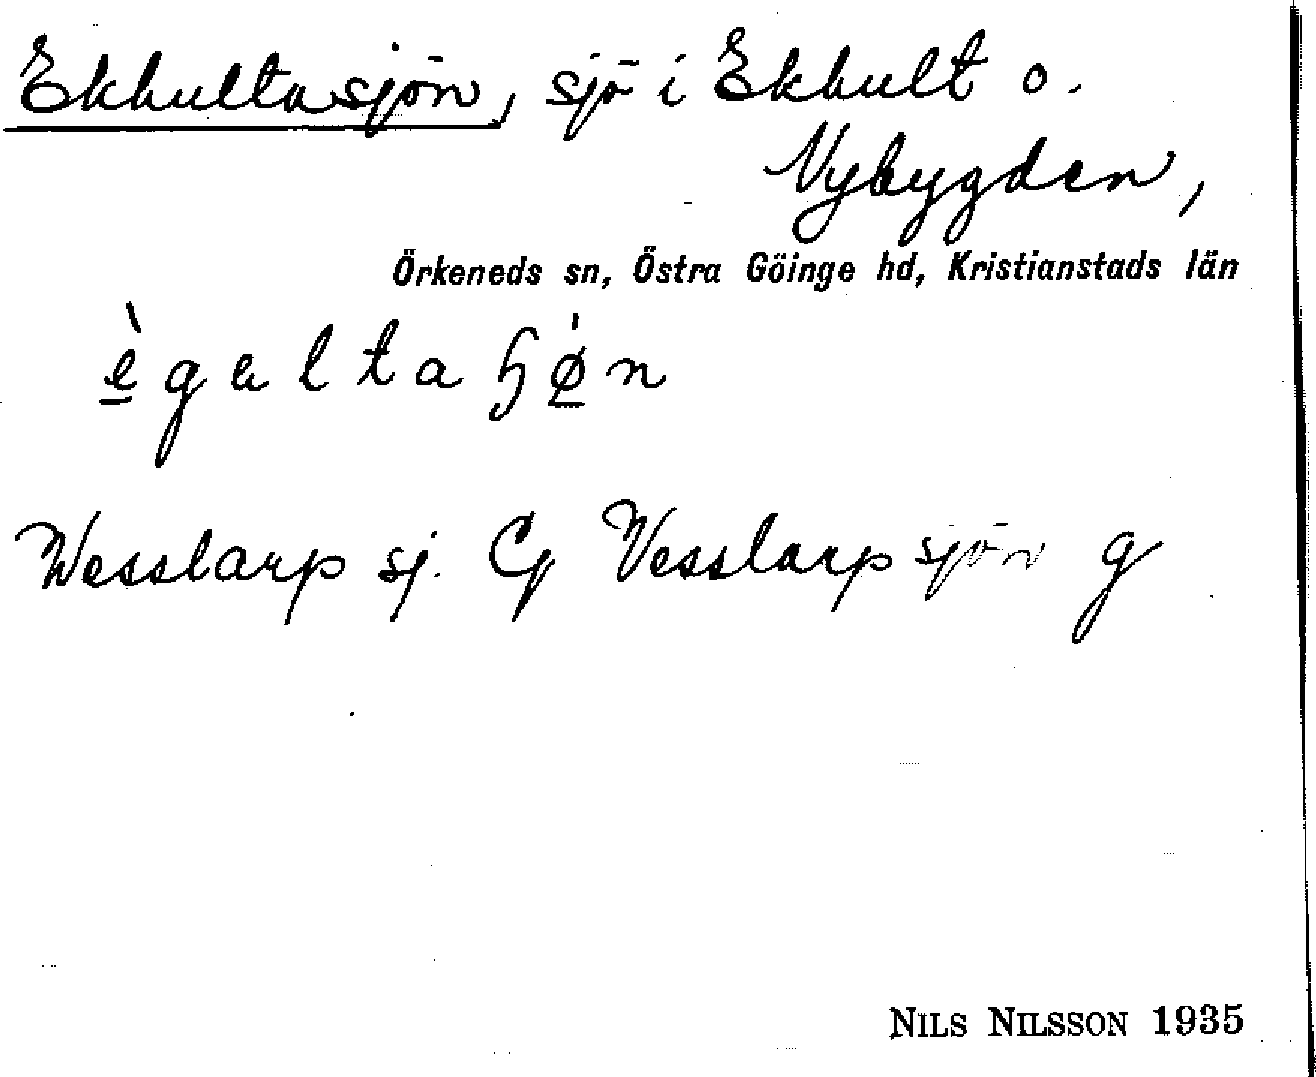 Ekhultasjön, sjö i Ekhult o.
Nybygden,
Örkeneds sn, Östra Göinge hd, Kristianstads län
è̲galtaɧǿ̲n
Wesslarp sj. Cg Vesslarpsjön g
NILS NILSSON 1935